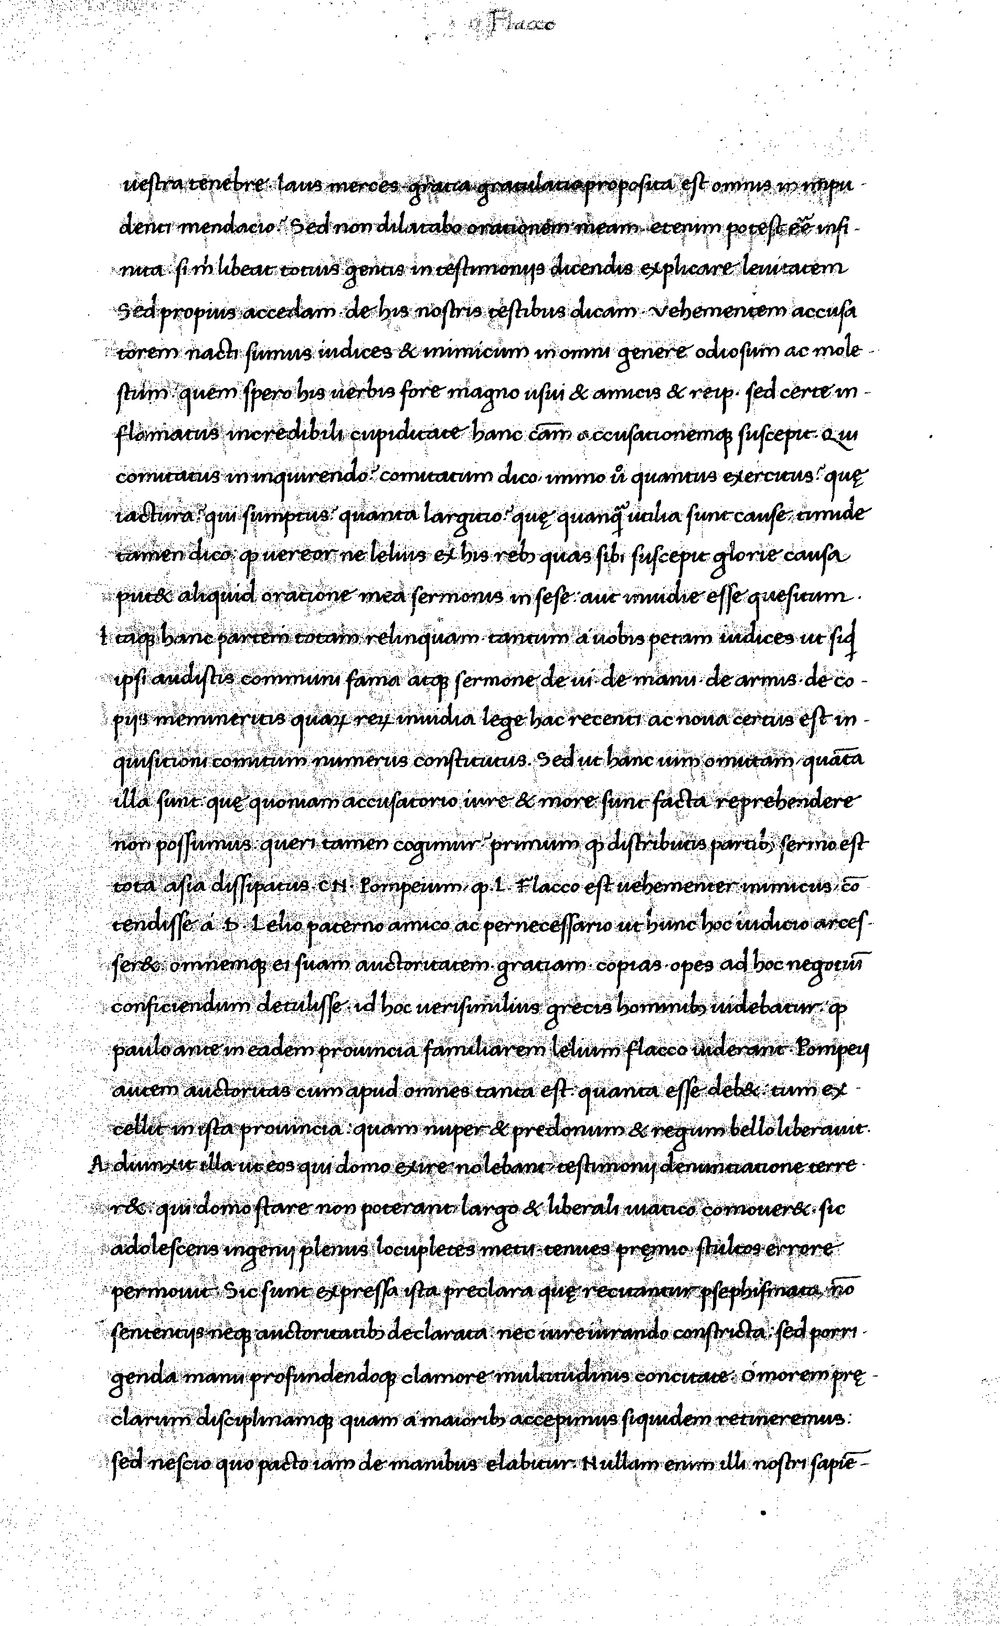 Flacco
uestra tenebre. laus merces gratia gratulatio proposita est omnis in impu-
denti mendacio? Sed non dilatabo orationem meam. etenim potest eē infi-
nita. si m̄ libeat totius gentis in testimonijs dicendis explicare leuitatem
Sed propius accedam. de his nostris testibus dicam. vehementem accusa
torem nacti sumus iudices & inimicum in omni genere odiosum ac mole-
stum. quem spero his uerbis fore magno usui & amicis & reip. sed certe in-
flamatus incredibili cupiditate hanc cām accusationemqꝫ suscepit. Qui
comitatus in inquirendo? comitatum dico. immo ů quantus exercitus? quę
iactura? qui sumptus? quanta largitio? quę quanqͣ utilia sunt cause. timide
tamen dico. ꝙ uereor ne lelius ex his rebꝫ quas sibi suscepit glorie causa
put& aliquid oratione mea sermonis in sese. aut inuidie esse quesitum.
Itaqꝫ hanc partem totam relinquam. tantum a uobis petam iudices ut siqͥ
ipsi audistis communi fama atqꝫ sermone de ui. de manu. de armis. de co-
pijs memineritis quaꝝ reꝝ inuidia lege hac recenti ac noua certus est in-
quisitioni comitum numerus constitutus. Sed ut hanc uim omittam. quāta
illa sunt quę quoniam accusatorio iure & more sunt facta reprehendere
non possumus. queri tamen cogimur? primum ꝙ distributis partibꝫ sermo est
tota asia dissipatus. CN. Pompeium. ꝙ L. Flacco est uehementer inimicus. cō
tendisse a D. Lelio paterno amico ac pernecessario ut hunc hoc iudicio arces-
ser&. omnemqꝫ ei suam auctoritatem. gratiam. copias. opes ad hoc negotiū
conficiendum detulisse. id hoc uerisimilius grecis hominibꝫ uidebatur. ꝙ
paulo ante in eadem prouincia familiarem lelium flacco uiderant. Pompeij
autem auctoritas cum apud omnes tanta est. quanta esse deb&. tum ex-
cellit in ista prouincia. quam nuper & predonum & regum bello liberauit.
Adiunxit illa ut eos qui domo exire nolebant. testimonij denuntiatione terre
r&. qui domo stare non poterant. largo & liberali uiatico comouer&. sic
adolescens ingenij plenus locupletes metu. tenues pręmio. stultos errore
permouit. Sic sunt expressa ista preclara quę recitantur psephismata. nō
sententijs neqꝫ auctoritatibꝫ declarata. nec iureiurando constricta. sed porri-
genda manu profundendoqꝫ clamore multitudinis concitate. O morem prę-
clarum disciplinamqꝫ quam a maioribꝫ accepimus siquidem retineremus.
sed nescio quo pacto iam de manibus elabitur. Nullam enim illi nostri sapiē-